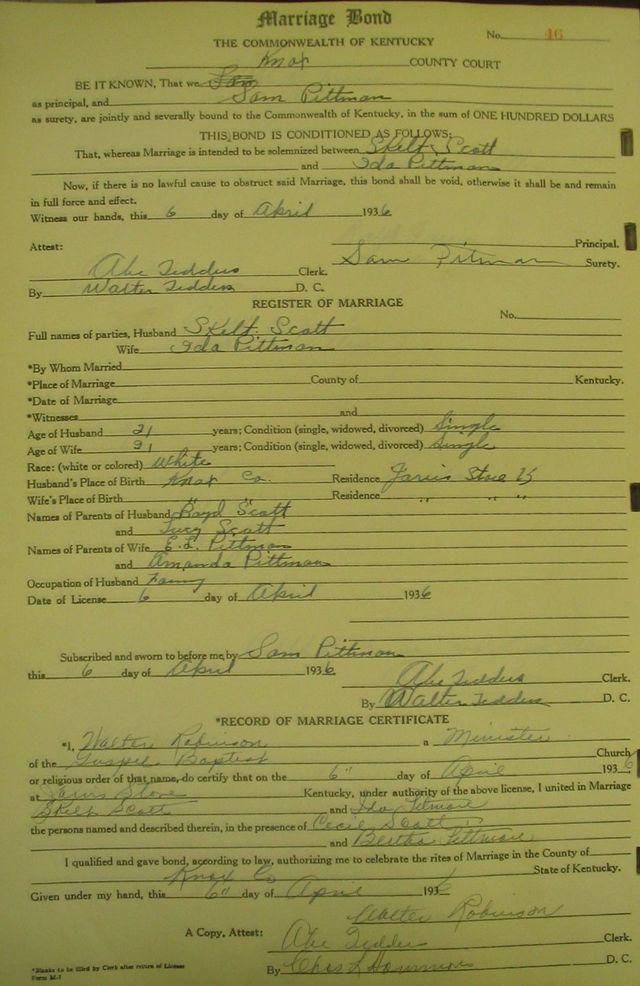 Marriage Bond
No. 46
THE COMMONWEALTH OF KENTUCKY
Knox COUNTY COURT
BE IT KNOWN, That we Sam
as principal, and Sam Pittman
as surety, are jointly and severally bound to the Commonwealth of Kentucky, in the sum of ONE HUNDRED DOLLARS
THIS BOND IS CONDITIONED AS FOLLOWS:
That, whereas Marriage is intended to be solemnized between Skelt Scott
and Ida Pittman
Now, if there is no lawful cause to obstruct said Marriage, this bond shall be void, otherwise it shall be and remain
in full force and effect.
Witness our hands, this 6 day of April 1936
Attest: Principal.
Abe Tedders Clerk. Sam Pitman Surety.
By Walter Tedders D. C.
REGISTER OF MARRIAGE
No.
Full names of parties, Husband Skelt Scott
Wife Ida Pittman
*By Whom Married
*Place of Marriage County of Kentucky.
*Date of Marriage
*Witnesses and
Age of Husband 21 years; Condition (single, widowed, divorced) Single
Age of Wife 21 years; Condition (single, widowed, divorced) Single
Race: (white or colored) White
Husband's Place of Birth Knox Co. Residence Store Ky
Wife's Place of Birth " " Residence " " "
Names of Parents of Husband Boyd Scott
and Lucy Scott
Names of Parents of Wife E. L. Pittman
and Amanda Pittman
Occupation of Husband
Date of License 6 day of April 1936
Subscribed and sworn to before me by Sam Pittman
this 6 day of April 1936
Abe Tedders Clerk.
By Walter Tedders D. C.
*RECORD OF MARRIAGE CERTIFICATE
*I, Walter Robinson a Minister
of the Gospel Baptist Church
or religious order of that name, do certify that on the 6" day of April 1936
at Store Kentucky, under authority of the above license, I united in Marriage
Skelt Scott and Ida Pitman
the persons named and described therein, in the presence of Cecil Scott
and Bertha Pittman
I qualified and gave bond, according to law, authorizing me to celebrate the rites of Marriage in the County of
Knox Co State of Kentucky.
Given under my hand, this 6" day of April 1936
Walter Robinson
A Copy, Attest: Abe Tedders Clerk.
By Chas D. C.
*Blanks to be filled by Clerk after return of License
Form M-7